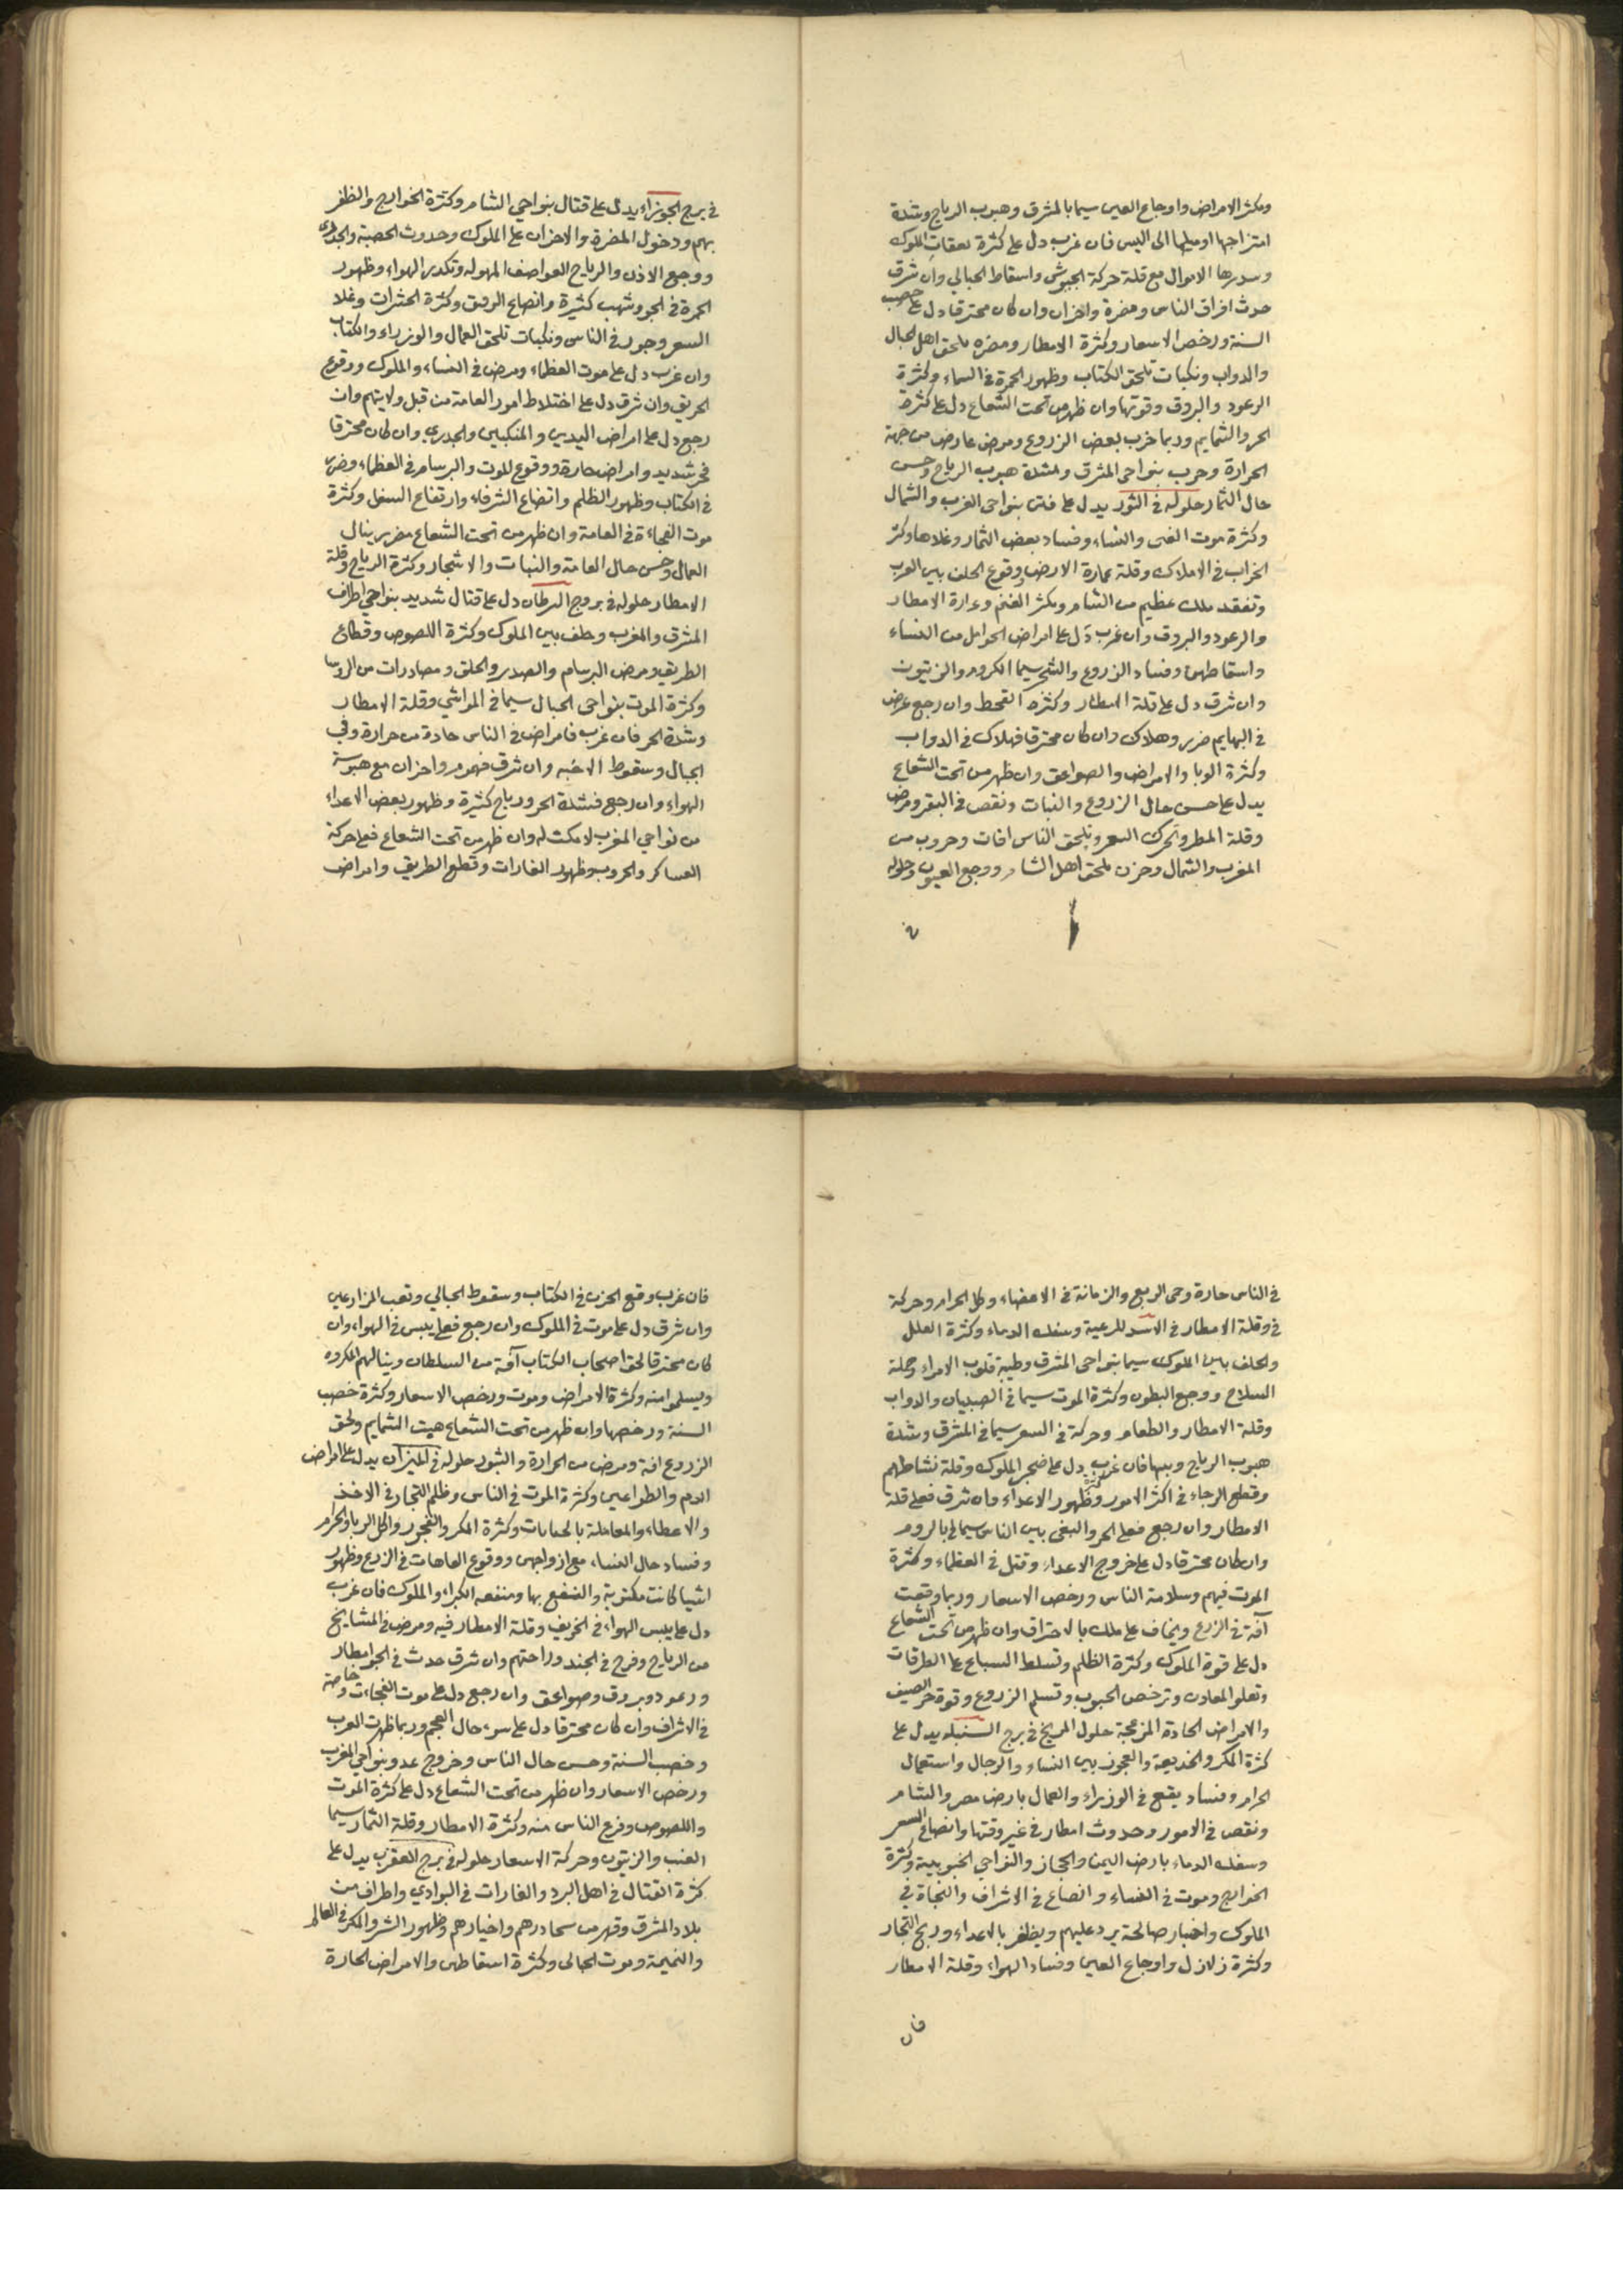 ويكثر الامراض واوجاع العين سيما بالمشرق وهبوب الرياح وشدة
امتزاجها وميلها الى اليبس فان غرب دل على كثرة نفقات الملوك
الاموال مع قلة حركة الجيوش واسقاط الحبالي وان شرق
حدث افراق الناس ومضرة واحزان وان كان محترقا دل على خصب
السنة ورخص الاسعار وكثرة الامطار ومضره تلحق اهل الجبال
والدواب ونكبات تلحق الكتاب وظهور الحمرة في السماء وكثرة
الرعود والبروق وقوتها وان ظهر من تحت الشعاع دل على كثرة
الحر والشمايم وربما خرب بعض الزروع ومرض عارض من جهة
الحرارة وحرب بنواحي المشرق وشدة هبوب الرياح وحسن
حال الثمار حلوله في الثور يدل على فتن بنواحي الغرب والشمال
وكثرة موت الغنى والنساء وفساد بعض الثمار وغلاها وكثر
الخراب في الاملاك وقلة عمارة الارض ووقوع الخلف بين العرب
وتفقد ملك عظيم من الشام ويكثر الغنم وغزارة الامطار
والرعود والبروق وان غرب دل على امراض الحوامل من النساء
واسقاطهن وفساد الزروع والشجر سيما الكروم والزيتون
وان شرق دل على قلة المطار وكثرة القحط وان رجع عرض
في البهايم ضرر وهلاك وان كان محترقا فهلاك في الدواب
وكثرة الوبا والامراض والصواعق وان ظهر من تحت الشعاع
يدل على حسن حال الزروع والنبات ونقص في البقر ومرض
وقلة المطر وتحرك السعر ويلحق الناس افات وحروب من
المغرب والشمال وحزن يلحق اهل الشام ووجع العيون وحلوله
في
في برج الجوزاء يدل على قتال بنواحي الشام وكثرة الخوارج والظفر
بهم ودخول المضرة والاحزان على الملوك وحدوث الحصبة والجدري
ووجع الاذن والرياح العواصف المهوله وتكدر الهواء وظهور
الحمرة في الجو وشهب كثيرة واتضاع الروق وكثرة الحشرات وغلا
السعر وجور في الناس ونكبات تلحق العمال والوزراء والكتاب
وان غرب دل على موت العظماء ومرض في النساء والملوك ووقوع
الحريق وان شرق دل على اختلاط امور العامة من قبل ولايتهم وان
رجع دل على امراض اليدين والمنكبين والجدري وان كان محترقا
فحر شديد وامراض حارة ووقوع الموت والبرسام في العظماء وضرر
في الكتاب وظهور الظلم واتضاع الشرفاء وارتفاع السفل وكثرة
موت الفجاءة في العامة وان ظهر من تحت الشعاع فضرر ينال
العمال وحسن حال العامة والنبات والاشجار وكثرة الرياح وقلة
الامطار حلوله في بروج السرطان دل على قتال شديد بنواحي اطراف
المشرق والمغرب وخلف بين الملوك وكثرة اللصوص وقطاع
الطريق ومرض البرسام والصدر والحلق ومصادرات من الروسا
وكثرة الموت بنواحي الجبال سيما في المواشي وقلة الامطار
وشدة الحر فان غرب فامراض في الناس حادة من حرارة وفي
الجبال وسقوط الاخبه وان شرق فهموم واحزان مع هبوسة
الهواء وان رجع فشدة الحر ورياح كثيرة وظهور بعض الاعداء
من نواحي المغرب لا مكث له وان ظهر من تحت الشعاع فعلى حركة
العساكر والحروب وظهور الغارات وقطع الطريق وامراض
في الناس حارة وحمى الربع والزمانة في الاعضاء وكل الحرام وحركة
في وقلة الامطار في الاسد للرعية وسفك الدماء وكثرة العلل
والخلف بين الملوك سيما بنواحي المشرق وطيبة قلوب الامراء وحملة
السلاح ووجع البطون وكثرة الموت سيما في الصبيان والدواب
وقلة الامطار والطعام وحركة في السعر سيما في المشرق وشدة
هبوب الرياح ويبسها فان غرب دل على ضجر الملوك وقلة نشاطهم
وقطع الرجاء في اكثر الامور وظهور الاعداء وان شرق فعلى قلة
الامطار وان رجع فعلى الحر والبغى بين الناس سيما في بالروم
وان كان محترقا دل على خروج الاعداء وقتل في العظماء وكثرة
الموت فيهم وسلامة الناس ورخص الاسعار وربما وقعت
آفة في الزرع ويخاف على ملك بالاحتراق وان ظهر من تحت الشعاع
دل على قوة الملوك وكثرة الظلم وتسلط السباع على الطرقات
وتعلوا المعادن وترخص الحبوب وتسلم الزروع وقوة حر الصيف
والامراض الحادة المزعجة حلول المريخ في برج السنبله يدل على
كثرة المكر والخديعة والفجور بين النساء والرجال واستعمال
الحرام وفساد يقع في الوزراء والعمال بارض مصر والشام
ونقص في الامور وحدوث امطار في غير وقتها واتضاع السعر
وسفك الدماء بارض اليمن والحجاز والنواحي الجنوبية وكثرة
الخوارج وموت في النساء واتضاع في الاشراف والنجاة في
الملوك واخبار صالحة يرد عليهم ويظفر بالاعداء وربح التجار
وكثرة زلازل واوجاع العين وفساد الهواء وقلة الامطار
فان
فان غرب وقع الحزن في الكتاب وسقوط الحبالي وتعب المزارعين
وان شرق دل على موت في الملوك وان رجع فعلى يبس في الهواء وان
كان محترقا لحق اصحاب الكتاب آفة من السلطان وينالهم المكروه
ويسلموا منه وكثرة الامراض وموت ورخص الاسعار وكثرة خصب
السنة ورخصها وان ظهر من تحت الشعاع هبت الشمايم ولحق
الزروع افة ومرض من الحرارة والبثور حلوله في الميزان يدل على امراض
الدم والطواعين وكثرة الموت في الناس وظلم التجار في الاخذ
والاعطاء والمعاملة بالحسابات وكثرة المكر والفجور واكل الربا والحرام
وفساد حال النساء مع ازواجهن ووقوع العاهات في الزرع وظهور
اشيا كانت مكتوبة والنفع بها ومنفعه الكبراء والملوك فان غرب
دل على يبس الهواء في الخريف وقلة الامطار فيه ومرض في المشايخ
من الرياح وفرح في الجند وراحتهم وان شرق حدث في الجو امطار
ورعود وبروق وصواعق وان رجع دل على موت الفجاءت وخاصة
في الاشراف وان كان محترقا دل على سوء حال العجم وربما ظهرت العرب
وخصب السنة وحسن حال الناس وخروج عدو بنواحي المغرب
ورخص الاسعار وان ظهر من تحت الشعاع دل على كثرة الموت
واللصوص وفزع الناس منه وكثرة الامطار وقلة الثمار سيما
العنب والزيتون وحركة الاسعار حلوله في برج العقرب يدل على
كثرة القتال في اهل البرد والغارات في البوادي واطراف من
بلاد المشرق وقهر من واخيارهم وظهور الشر والمكر في العالم
والنميمة وموت الحبالى وكثرة اسقاطهن والامراض الحارة